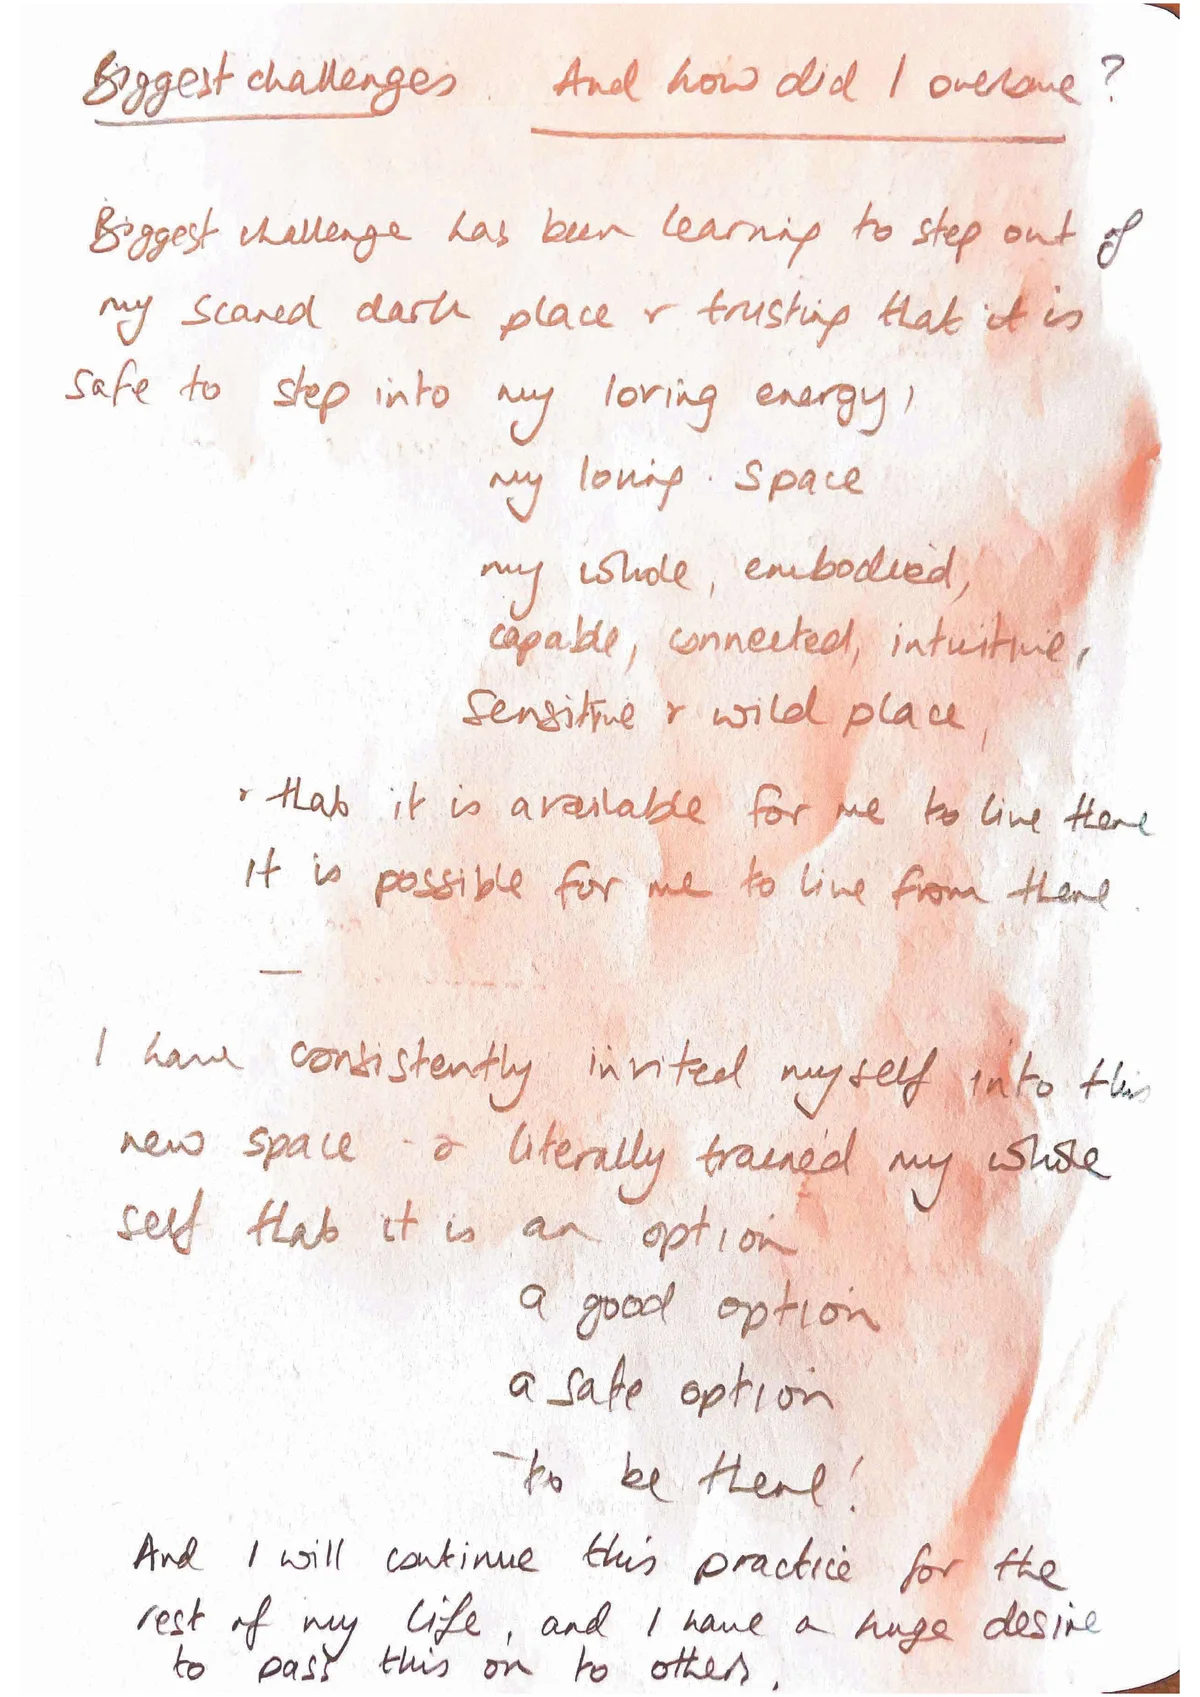 Biggest challenges And how did I overcome?
Biggest challenge has been learning to step out of
my scared dark place & trusting that it is
safe to step into my loving energy,
my loving space
my whole, embodied,
capable, connected, intuitive,
sensitive & wild place,
& that it is available for me to live there
It is possible for me to live from there.
—
I have consistently invited myself into this
new space - & literally trained my whole
self that it is an option
a good option
a safe option
- to be there!
And I will continue this practice for the
rest of my life, and I have a huge desire
to pass this on to others.